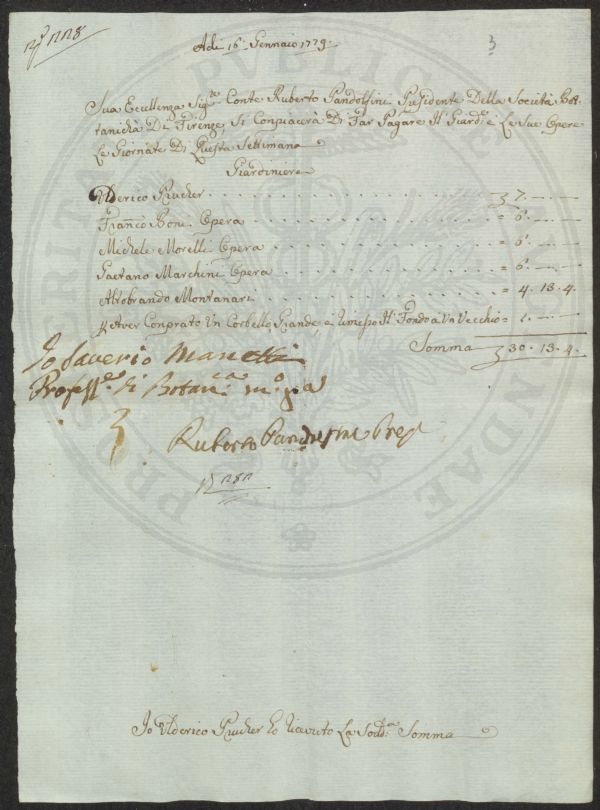 Adi 16: Gennaio 1779:
3
Sua Eccellenza Sig.re Conte Ruberto Pandolfini Presidente Della Società Bot=
tanicha Di Firenze, Si Conpiacerà Di Far Pagare Il Giard.e e Le Sue Opere
Le Giornate Di Questa Settimana
Giardiniere
Ulderico Prucher 7. — —
Franco Boni Opera = 6. — —
Michele Morelli Opera = 6. — —
Gaetano Marchini Opera = 6. — —
Aldobrando Montanari = 4. 13. 4.
p Aver Conprato Un Corbello Grande, e Rimesso Il Fondo a Un Vecchio = 1. — —
Somma 30. 13. 4.
Io Saverio Manetti
Profess.re di Botan.ca m.o p.a
Ruberto Pandolfini Pres.
Io Ulderico Prucher ho Ricevuto La Sodd.a Somma
PROSPERITATI PUBLICAE AUGENDAE